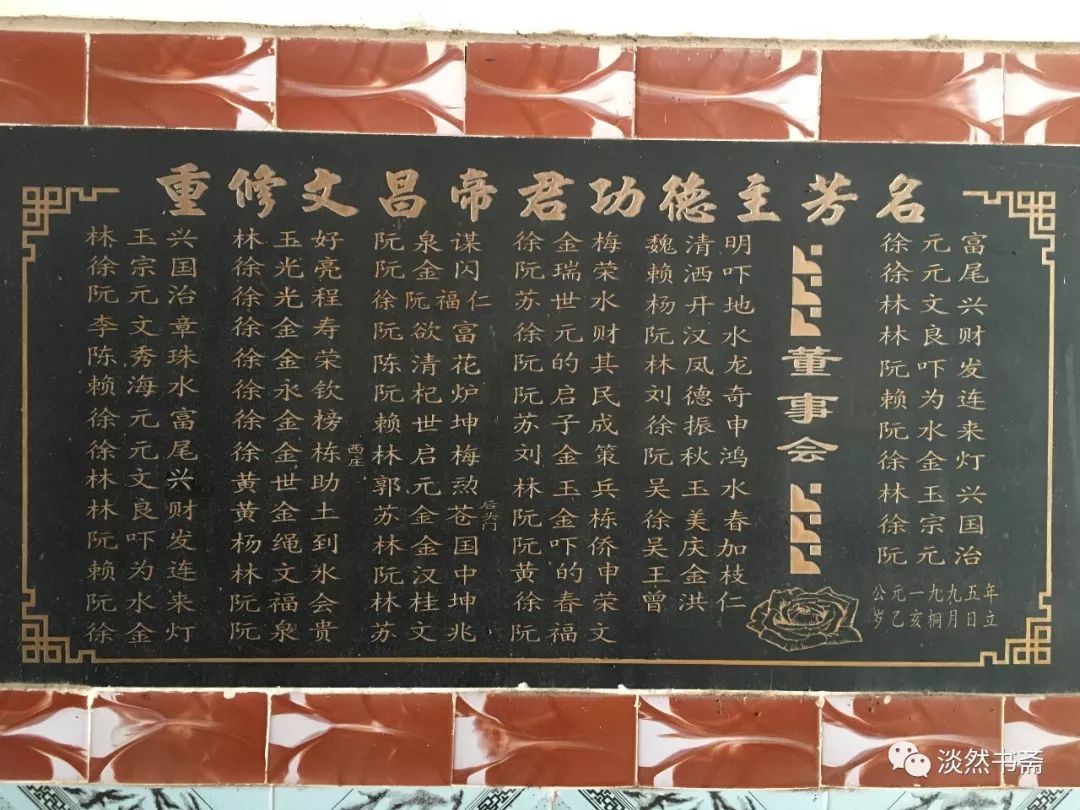 重修文昌帝君功德主芳名
林玉兴
徐宗国
阮元治
李文章
陈秀珠
赖海水
徐元富
徐元尾
林文兴
林良财
阮吓发
赖为连
阮水来
徐金灯
林玉好
徐光亮
徐光程
徐金寿
徐金荣
徐永钦
徐金榜
徐金栋
黄世助
黄金土
杨绳到
林文氷
阮福会
阮泉贵
阮泉谋
阮金闪
徐阮福仁
阮欲富
陈清花
阮杞炉
赖世坤
西庄
林启梅
郭元
苏金苍
林金国
阮汉中
林桂坤
苏文兆
徐金梅
阮瑞荣
苏世水
徐元财
阮的其
阮启民
苏子成
刘金策
林玉兵
阮金栋
阮吓侨
黄的申
徐春荣
阮福文
魏清明
赖洒吓
杨开地
阮汉水
林凤龙
刘德奇
徐振申
阮秋鸿
吴玉水
徐美春
吴庆加
王金枝
曾洪仁
董事会
徐元富
徐元尾
林文兴
林良财
阮吓发
赖为连
阮水来
徐金灯
林玉兴
徐宗国
阮元治
公元一九九五年
岁乙亥桐月日立
淡然书斋